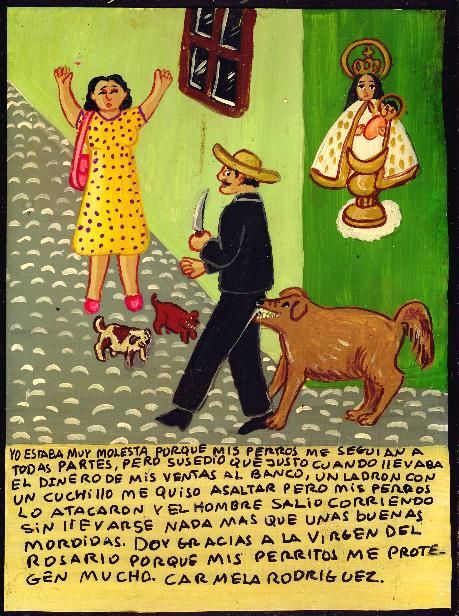 YO ESTABA MUY MOLESTA PORQUE MIS PERROS ME SEGUIAN A
TODAS PARTES, PERO SUSEDIO QUE JUSTO CUANDO llEVABA
EL DINERO DE MIS VENTAS AL BANCO, UN LADRON CON
UN CUCHIllO ME QUISO ASALTAR PERO MIS PERROS
LO ATACARON Y EL HOMBRE SALIO CORRIENDO
SIN llEVARSE NADA MAS QUE UNAS BUENAS
MORDIDAS. DOY GRACIAS A LA VIRGEN DEL
ROSARIO PORQUE MIS PERRITOS ME PROTE-
GEN MUCHO. CARMELA RODRIGUEZ.